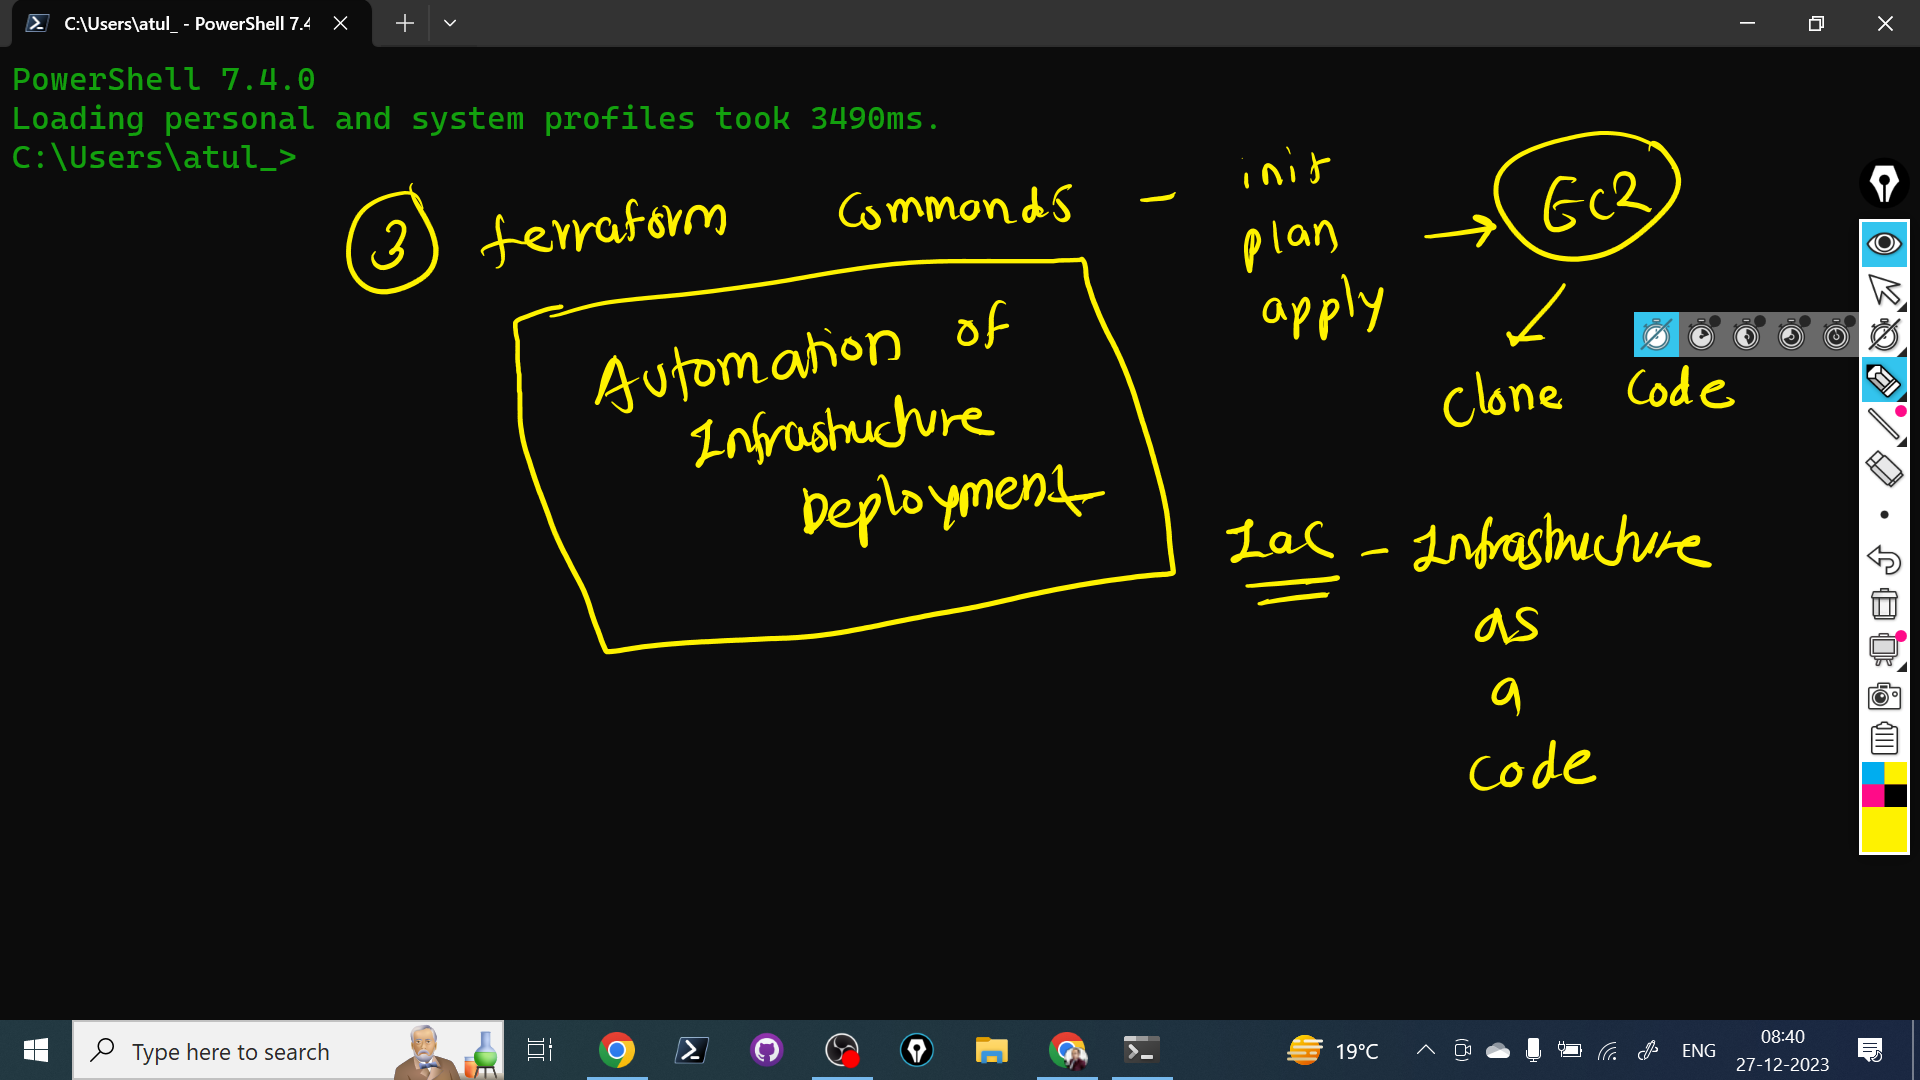 C:\Users\atul_ - PowerShell 7.4
PowerShell 7.4.0
Loading personal and system profiles took 3490ms.
C:\Users\atul_>
3 terraform commands - init
plan
apply
→ Ec2
Clone Code
Automation of
Infrastructure
Deployment
IaC - Infrastructure
as
a
code
Type here to search
19°C
ENG
08:40
27-12-2023